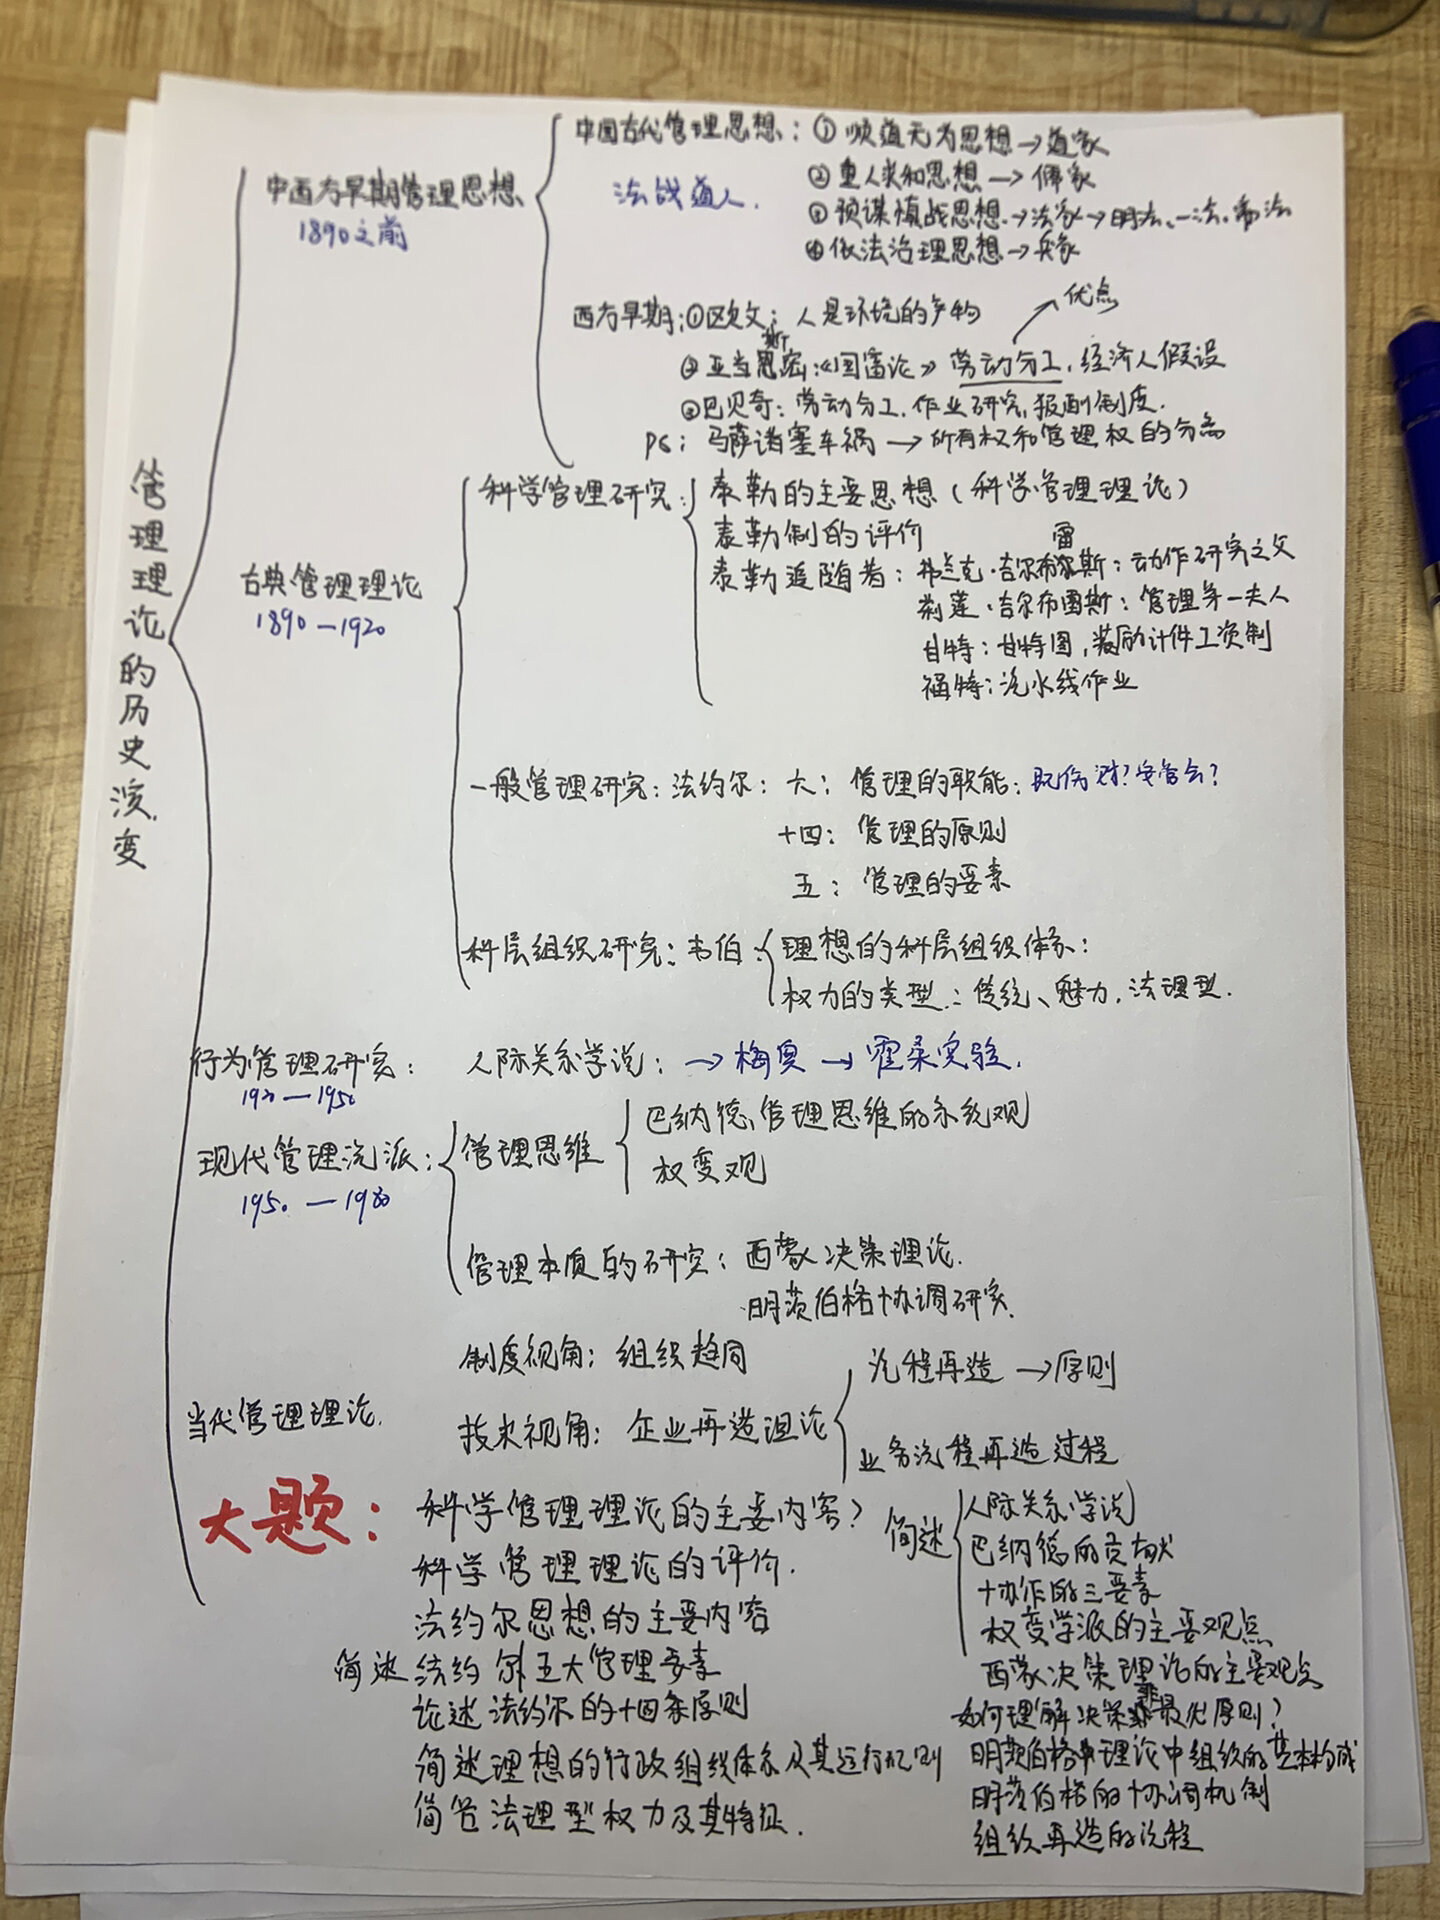 管理理论的历史演变
中西方早期管理思想
1890之前
中国古代管理思想：① 顺道无为思想→道家
② 重人求和思想→儒家
法战道人.
③ 预谋慎战思想→法家→明法、一法、常法
④ 依法治理思想→兵家
优点
西方早期：①欧文：人是环境的产物
②亚当斯密：《国富论》劳动分工，经济人假设
③巴贝奇：劳动分工，作业研究，报酬制度.
PS：马萨诸塞车祸→所有权和管理权的分离
古典管理理论
1890—1920
科学管理研究：
泰勒的主要思想（科学管理理论）
泰勒制的评价
泰勒追随者：弗兰克·吉尔布雷斯：动作研究之父
莉莲·吉尔布雷斯：管理第一夫人
甘特：甘特图，奖励计件工资制
福特：流水线作业
一般管理研究：法约尔：六：管理的职能：
十四：管理的原则
五：管理的要素
科层组织研究：韦伯：
理想的科层组织体系：
权力的类型：传统、魅力，法理型.
行为管理研究：人际关系学说：→梅奥→霍桑实验.
1920—1950
现代管理流派：
1950—1980
管理思维
巴纳德、管理思维的系统观
权变观
管理本质的研究：西蒙决策理论.
明茨伯格协调研究.
当代管理理论.
制度视角：组织趋同
技术视角：企业再造理论
流程再造→原则
业务流程再造过程
大题：
科学管理理论的主要内容？
科学管理理论的评价.
法约尔思想的主要内容
简述法约尔五大管理要素
论述法约尔的十四条原则
简述理想的行政组织体系及其运行规则
简答法理型权力及其特征.
简述
人际关系学说
巴纳德的贡献
协作的三要素
权变学派的主要观点
西蒙决策理论的主要观点
如何理解决策非最优原则？
明茨伯格理论中组织的基本构成
明茨伯格的协调机制
组织再造的流程